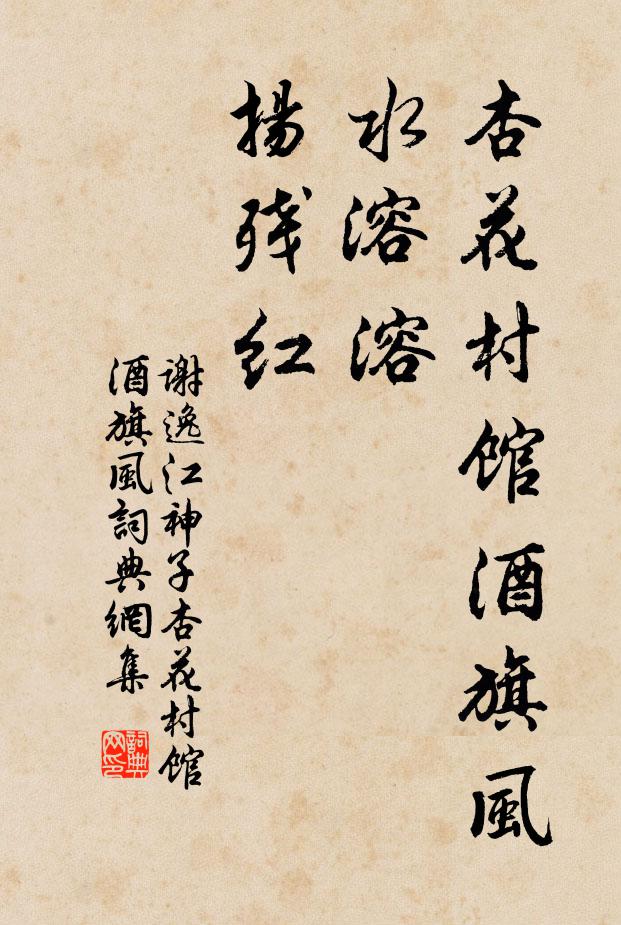 杏花村馆酒旗風
水溶溶
揚残红
谢逸江神子杏花村馆
酒旗風詞典網集
詞典网印